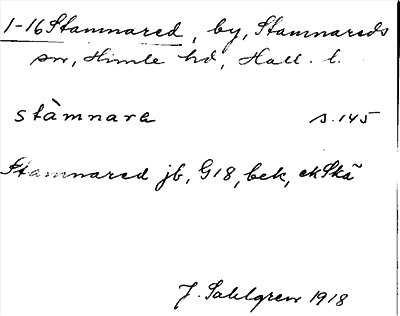 1-16 Stamnared, by, Stamnareds
sn, Himle hd, Hall. l.
stàmnara s. 145
Stamnared jb, G18, bek, ekSkã
J. Sahlgren 1918